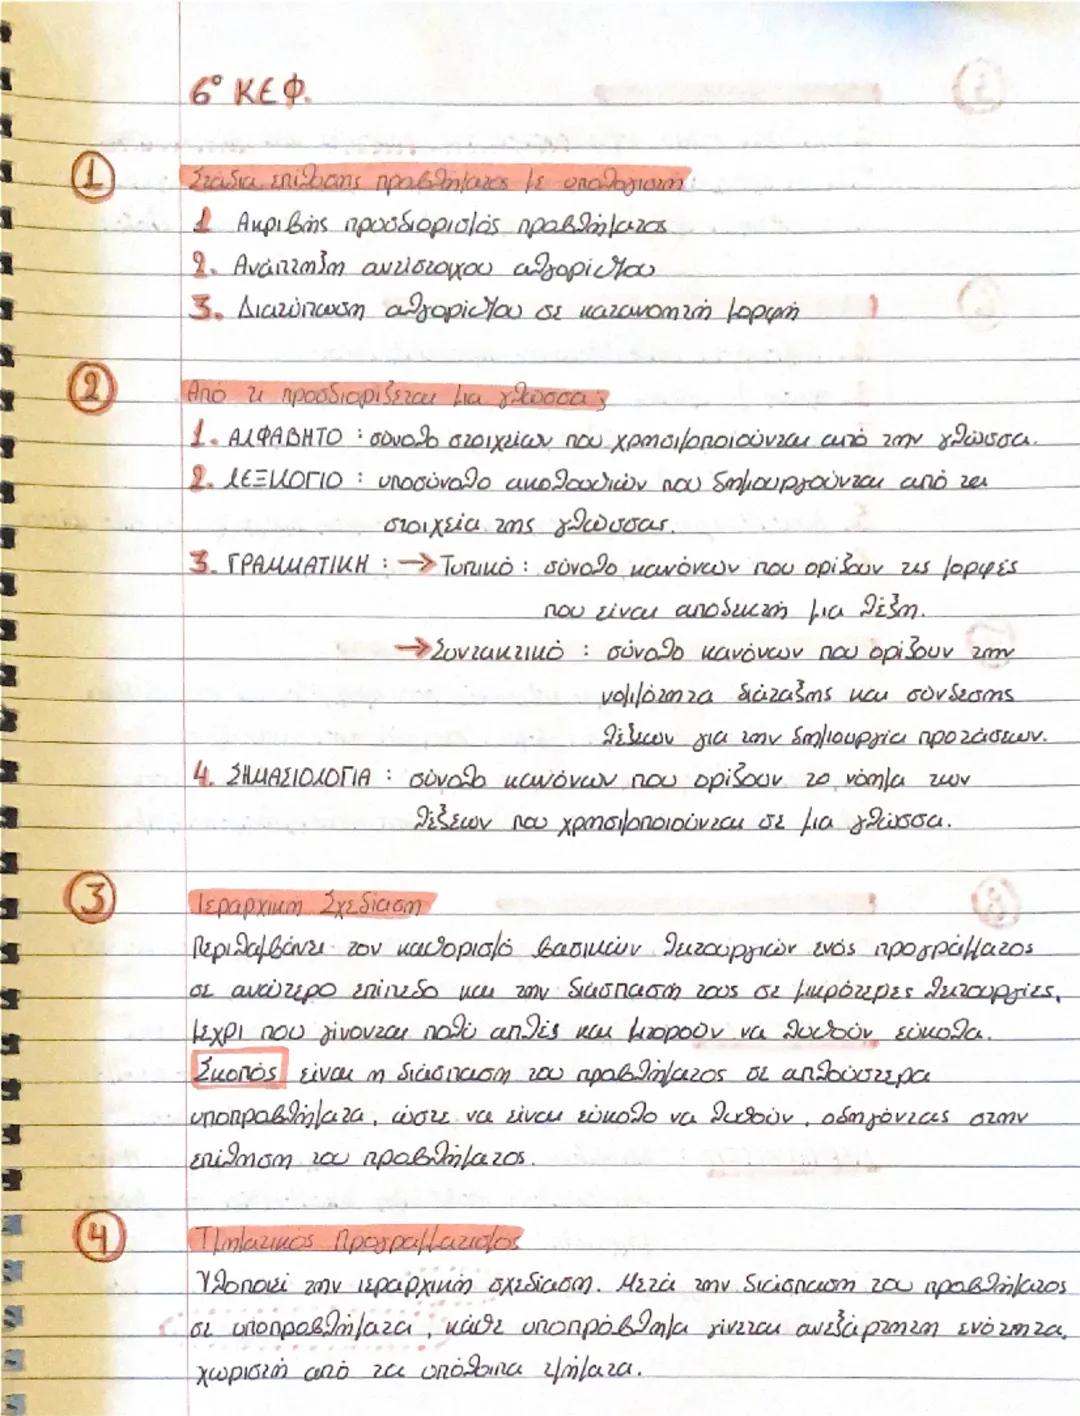 6° ΚΕΦ.
1 Στάδια επίλυσης προβλήματος με υπολογιστή:
1 Ακριβής προσδιορισμός προβλήματος
2. Ανάπτυξη αντίστοιχου αλγορίθμου
3. Διατύπωση αλγορίθμου σε κατανοητή μορφή
2 Από τι προσδιορίζεται μια γλώσσα;
1. ΑΛΦΑΒΗΤΟ : σύνολο στοιχείων που χρησιμοποιούνται από την γλώσσα.
2. ΛΕΞΙΛΟΓΙΟ : υποσύνολο ακολουθιών που δημιουργούνται από τα
στοιχεία της γλώσσας.
3. ΓΡΑΜΜΑΤΙΚΗ : → Τυπικό : σύνολο κανόνων που ορίζουν τις μορφές
που είναι αποδεκτή μια λέξη.
→ Συντακτικό : σύνολο κανόνων που ορίζουν την
νομιμότητα διάταξης και σύνδεσης
λέξεων για την δημιουργία προτάσεων.
4. ΣΗΜΑΣΙΟΛΟΓΙΑ : σύνολο κανόνων που ορίζουν το νόημα των
λέξεων που χρησιμοποιούνται σε μια γλώσσα.
3 Ιεραρχική Σχεδίαση
Περιλαμβάνει τον καθορισμό βασικών λειτουργιών ενός προγράμματος
σε ανώτερο επίπεδο και την διάσπαση τους σε μικρότερες λειτουργίες,
μέχρι που γίνονται πολύ απλές και μπορούν να λυθούν εύκολα.
Σκοπός είναι η διάσπαση του προβλήματος σε απλούστερα
υποπροβλήματα, ώστε να είναι εύκολο να λυθούν, οδηγόντας στην
επίληση του προβλήματος.
4 Τμηματικός Προγραμματισμός
Υλοποιεί την ιεραρχική σχεδίαση. Μετά την διάσπαση του προβλήματος
σε υποπροβλήματα, κάθε υποπρόβλημα γίνεται ανεξάρτητη ενότητα,
χωριστή από τα υπόλοιπα τμήματα.